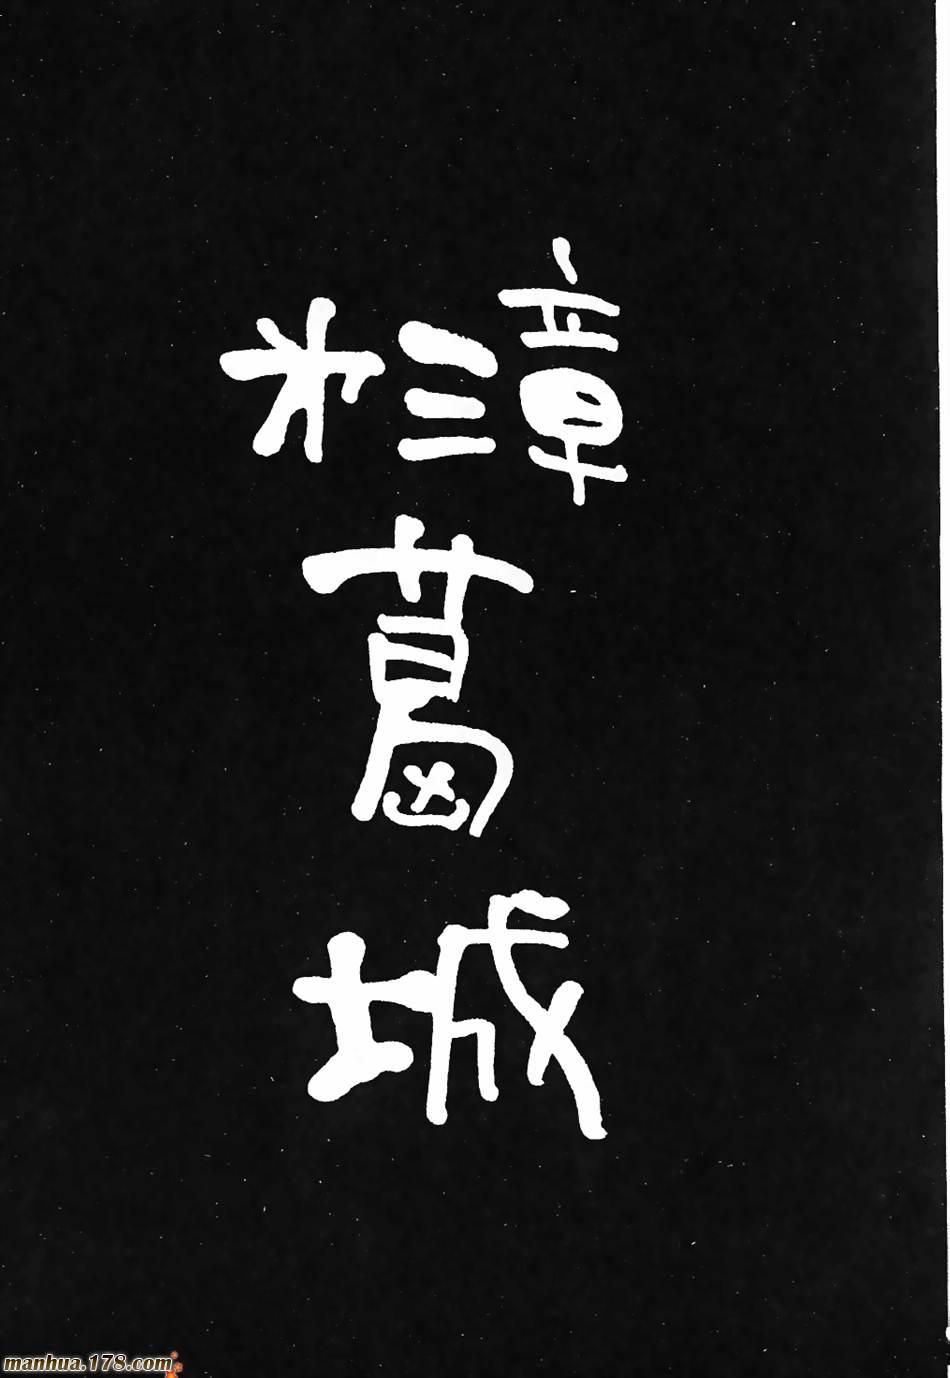 第三章
葛
城
manhua.178.com